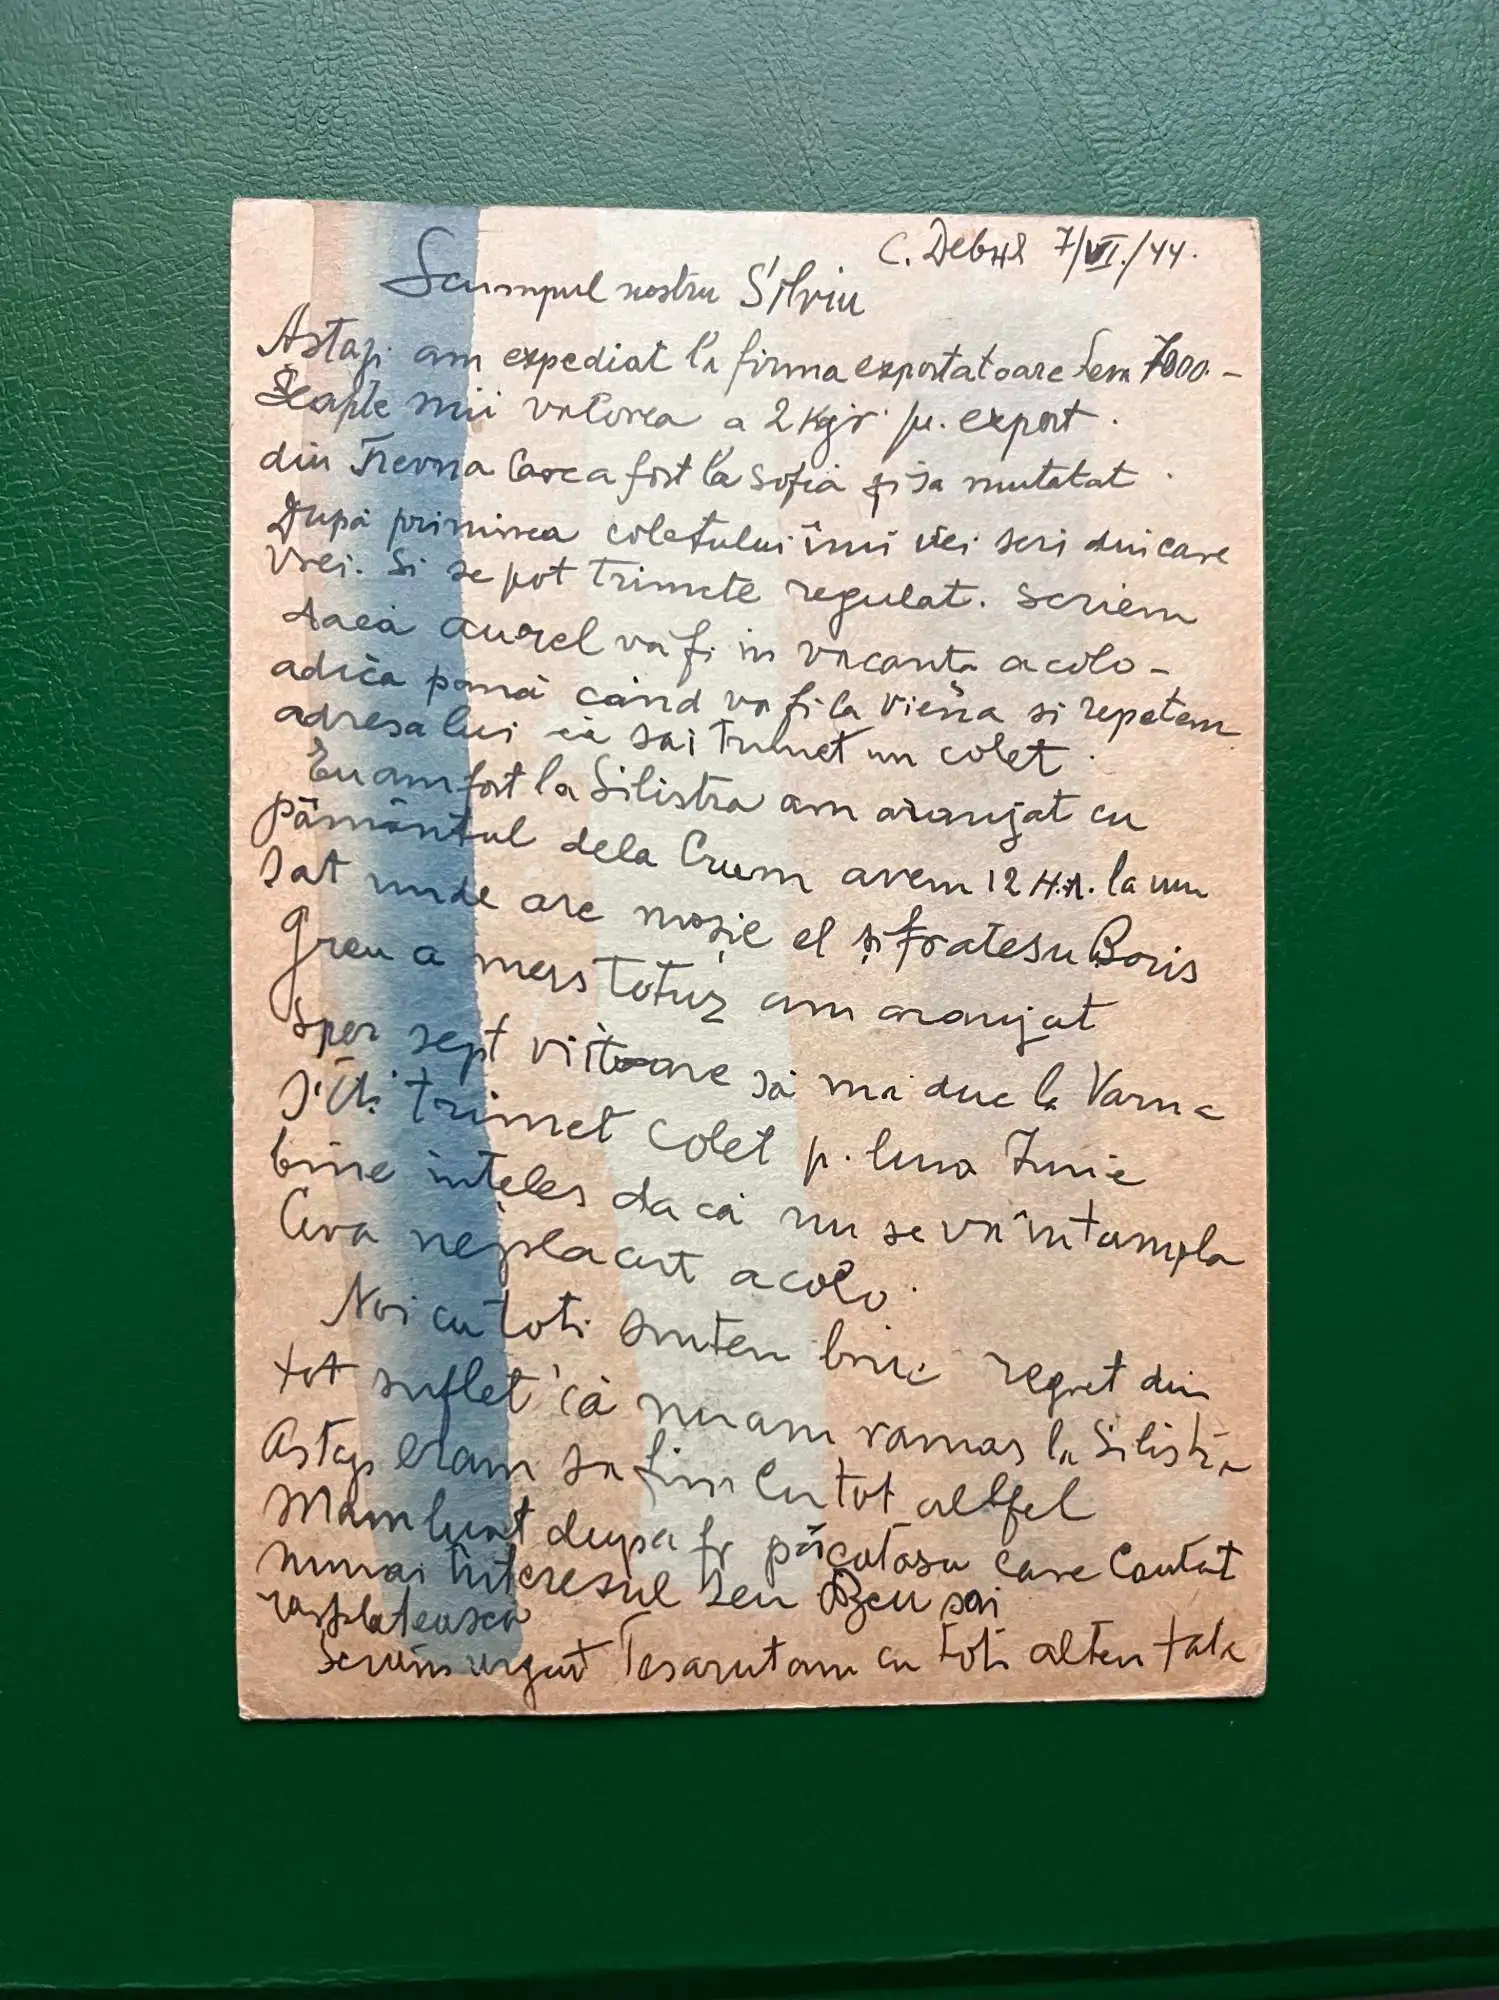 C. Debня 7/VI./44.
Scumpul nostru Silviu
Astazi am expediat la firma exportatoare Leva 7000 –
Șeapte mii valorea a 2 Kgr. p. export.
din Trevna Care a fost la Sofia și sa mutatat
După primirea coletului îmi vei scri din care
vrei. Si se pot trimete regulat. Scriem
dacă aurel va fi in vacanta acolo –
adică pană când va fi la Viena si repetam
adresa lui că săi trimet un colet.
Eu am fost la Silistra am aranjat cu
pământul dela Crum avem 12 H.A. la un
Sat unde are moșie el și fratesu Boris
Greu a mers totuș am aranjat
Sper sept viitoare să mă duc la Varna
să-ti trimet colet p. luna Iunie
bine ințeles dacă nu se va întampla
Ceva neplacut acolo.
Noi cu toti suntem bine regret din
tot suflet că nu am ramas la Silistra
Astazi eram sa fim Cu tot altfel
Mam luat dupa fr păcatosu care Cautat
numai interesul seu Dzeu sai
rasplateasca
Scriem urgent Te sarutam cu toti al teu tata